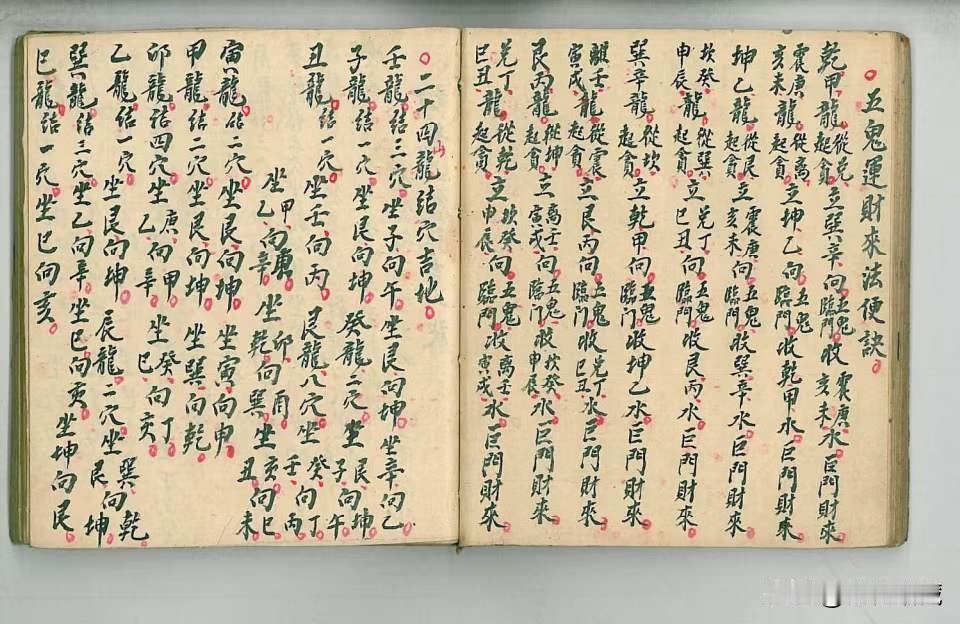 五鬼運財來法便訣
乾甲龍從兌起貪立巽辛向五鬼臨門收震庚亥未水巨門財來
震庚亥未龍從離起貪立坤乙向五鬼臨門收乾甲水巨門財來
坤乙龍從艮起貪立震庚亥未向五鬼臨門收巽辛水巨門財來
坎癸申辰龍從巽起貪立兌丁巳丑向五鬼臨門收艮丙水巨門財來
巽辛龍從坎起貪立乾甲向五鬼臨门收坤乙水巨門財來
離壬寅戌龍從震起貪立艮丙向五鬼臨門收兌丁巳丑水巨門財來
艮丙龍從坤起貪立離壬寅戌向五鬼臨门收坎癸申辰水巨門財來
兌丁巳丑龍從乾起貪立坎癸申辰向五鬼臨門收離壬寅戌水巨門財來
二十四山龍結穴吉地
壬龍結三穴坐子向午坐艮向坤坐辛向乙
子龍結一穴坐艮向坤癸龍二穴坐艮向坤子向午
丑龍結一穴坐壬向丙艮龍八穴坐癸向丁壬向丙
坐甲向庚乙向辛坐卯向酉乾向巽坐亥向巳丑向未
寅龍結二穴坐艮向坤坐寅向申
甲龍結二穴坐艮向坤坐巽向乾
卯龍結四穴坐庚向甲乙向辛坐癸向丁巳向亥
乙龍結一穴坐艮向坤辰龍二穴坐巽向乾艮向坤
巽龍結三穴坐乙向辛坐巳向亥坐坤向艮
巳龍結一穴坐巳向亥